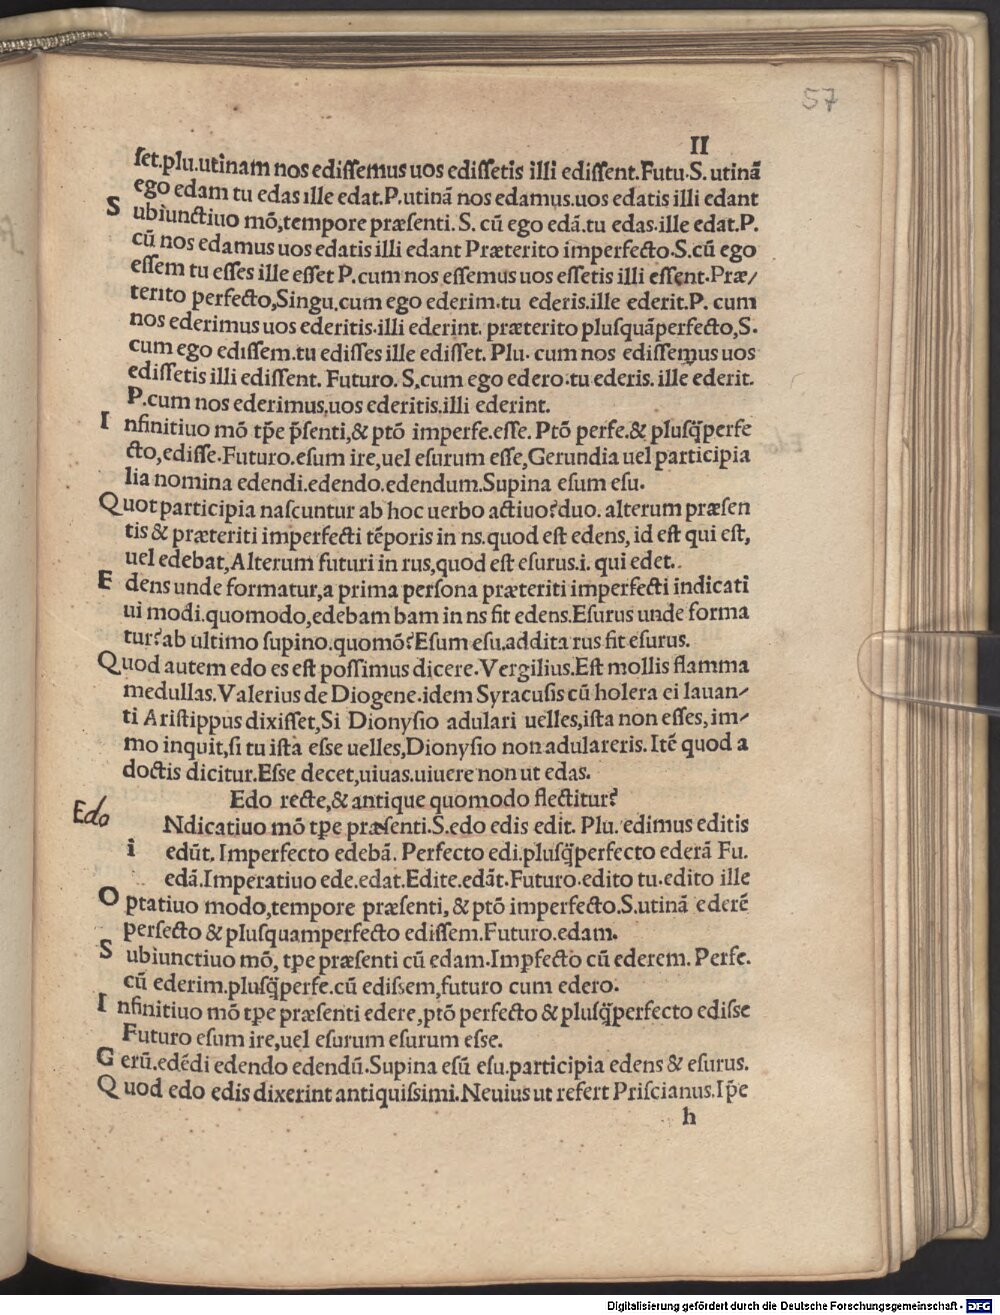 57
II
ſet.plu.utinam nos ediſſemus uos ediſſetis illi ediſſent.Futu.S. utinā
ego edam tu edas ille edat.P.utinā nos edamus.uos edatis illi edant
S ubiunctiuo mō,tempore præſenti. S. cū ego edā.tu edas.ille edat.P.
cū nos edamus uos edatis illi edant Præterito imperfecto.S.cū ego
eſſem tu eſſes ille eſſet P.cum nos eſſemus uos eſſetis illi eſſent.Præ/
terito perfecto,Singu.cum ego ederim.tu ederis.ille ederit.P. cum
nos ederimus uos ederitis.illi ederint. præterito pluſquāperfecto,S.
cum ego ediſſem.tu ediſſes ille ediſſet. Plu. cum nos ediſſemus uos
ediſſetis illi ediſſent. Futuro. S.cum ego edero.tu ederis. ille ederit.
P.cum nos ederimus.uos ederitis.illi ederint.
I nfinitiuo mō tp̄e p̄ſenti,& ptō imperfe.eſſe. Ptō perfe.& pluſq̄perfe
cto,ediſſe.Futuro.eſum ire,uel eſurum eſſe,Gerundia uel participia
lia nomina edendi.edendo.edendum.Supina eſum eſu.
Quot participia naſcuntur ab hoc uerbo actiuo?duo. alterum præſen
tis & præteriti imperfecti tēporis in ns.quod eſt edens, id eſt qui eſt,
uel edebat,Alterum futuri in rus,quod eſt eſurus.i. qui edet.
E dens unde formatur,a prima perſona præteriti imperfecti indicati
ui modi.quomodo,edebam bam in ns fit edens.Eſurus unde forma
tur?ab ultimo ſupino.quomō?Eſum eſu.addita rus fit eſurus.
Quod autem edo es eſt poſſimus dicere.Vergilius.Eſt mollis flamma
medullas.Valerius de Diogene.idem Syracuſis cū holera ei lauan/
ti Ariſtippus dixiſſet,Si Dionyſio adulari uelles,iſta non eſſes,im/
mo inquit,ſi tu iſta eſse uelles,Dionyſio non adulareris. Itē quod a
doctis dicitur.Eſse decet,uiuas.uiuere non ut edas.
Edo recte,& antique quomodo flectitur?
Edo
Ndicatiuo mō tp̄e præſenti.S.edo edis edit. Plu. edimus editis
i edūt. Imperfecto edebā. Perfecto edi.pluſq̄perfecto ederā Fu.
edā.Imperatiuo ede.edat.Edite.edāt.Futuro.edito tu.edito ille
O ptatiuo modo,tempore præſenti, & ptō imperfecto.S.utinā ederē
perfecto & pluſquamperfecto ediſſem.Futuro.edam.
S ubiunctiuo mō, tp̄e præſenti cū edam.Imp̄fecto cū ederem. Perfe.
cū ederim.pluſq̄perfe.cū ediſsem,futuro cum edero.
I nfinitiuo mō tp̄e præſenti edere,ptō perfecto & pluſq̄perfecto ediſse
Futuro eſum ire,uel eſurum eſurum eſse.
G erū.edēdi edendo edendū.Supina eſū eſu.participia edens & eſurus.
Q uod edo edis dixerint antiquiſsimi.Neuius ut refert Priſcianus.Ip̄e
h
Digitalisierung gefördert durch die Deutsche Forschungsgemeinschaft - DFG